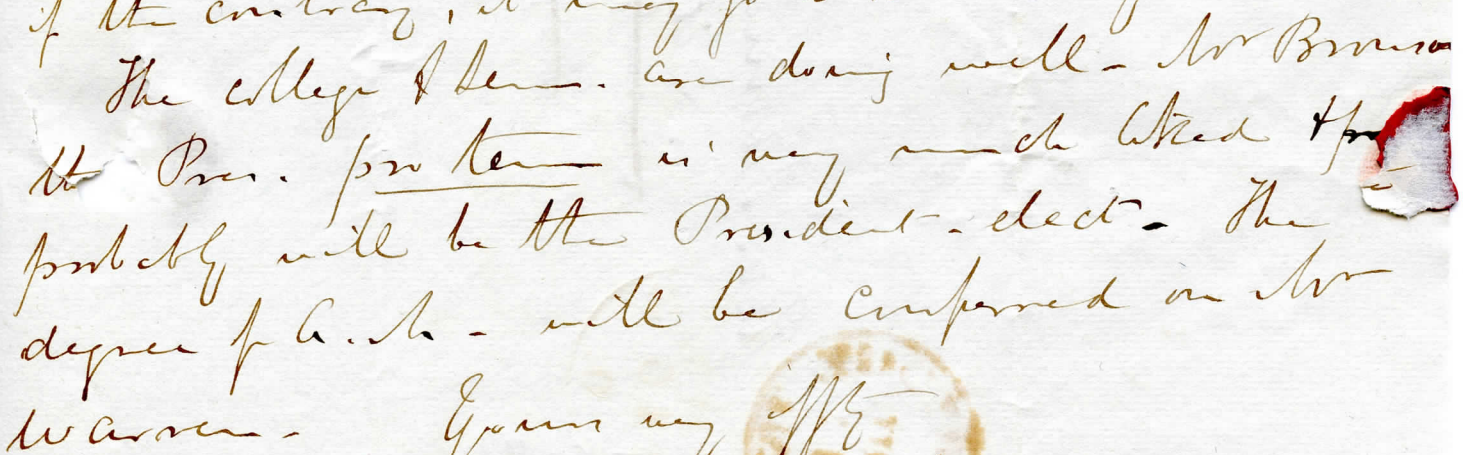 if the contrary, it may
The college & Sem. are doing well - Mr Bronson
the Pres. pro tem is very much liked &
probably will be the President-elect - The
degree of A.M. - will be conferred on Mr
Warren - Yours very aff